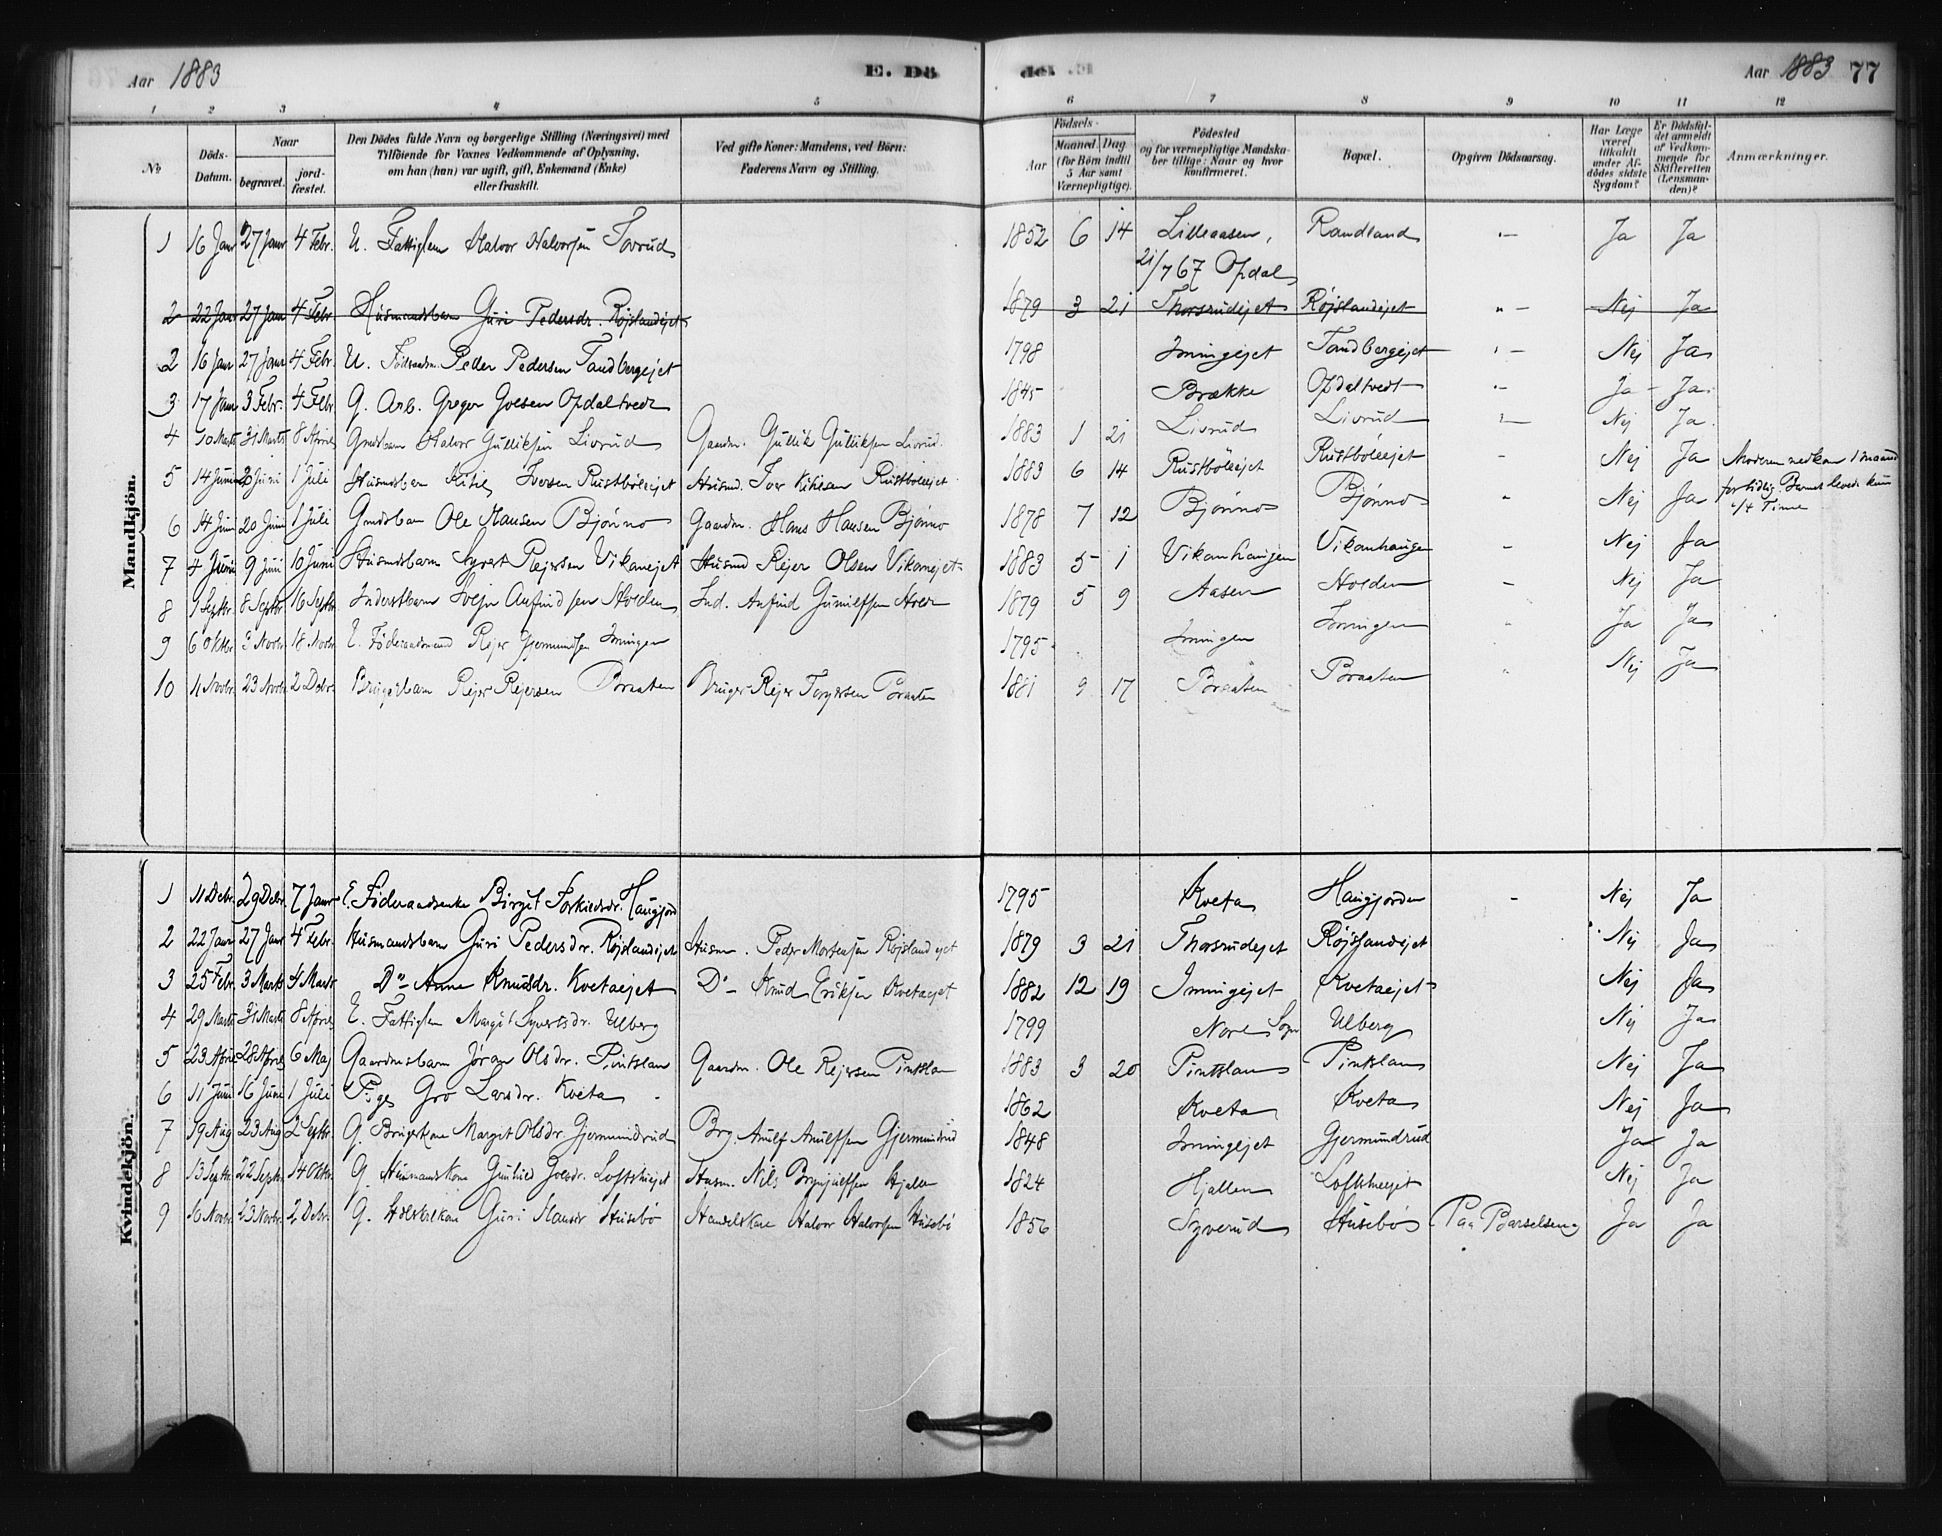 Aar 1883 E. Dö
1 2 3 4 5
No Döds-Datum. Naar begravet. jord-fæstet. Den Dödes fulde Navn og borgerlige Stilling (Næringsvei) med Tilföiende for Voxnes Vedkommende af Oplysning, om han (hun) var ugift, gift, Enkemand (Enke) eller fraskilt. Ved gifte Koner: Mandens, ved Börn: Faderens Navn og Stilling.
de. Aar 1883 77
6 7 8 9 10 11 12
Födsels- Aar Maaned. Dag (for Börn indtil 5 Aar samt Værnepligtige). Födested og for værnepligtige Mandska-ber tillige: Naar og hvor konfirmeret. Bopæl. Opgiven Dödsaarsag. Har Læge været tilkaldt under Af-dödes sidste Sygdom? Er Dödsfal-det anmeldt af Vedkom-mende for Skifteretten (Lensman-den)? Anmærkninger.
Mandkjön.
1 16 Janr 27 Janr 4 Febr. U. Fattiglem Halvor Halvorsen Tovrud 1852 6 14 Lilleaasen, Randland - Ja Ja
21/7 67 Opdal
2 22 Janr 27 Janr 4 Febr Husmandsbarn Guri Pedersdr. Røjslandejet 1879 3 21 Thorsrudejet Røjslandejet " - Nej Ja
2 16 Janr 27 Janr 4 Febr. U. Föderaadsm. Peder Pedersen Tandbergejet 1798 Imingejet Tandbergejet - Nej Ja
3 17 Janr 3 Febr. 4 Febr G. Arb. Greger Goesen Opdaltvedt 1845 Brække Opdaltvedt - Ja Ja
4 10 Marts 31 Marts 8 April Grmdsbarn Halvor Gulliksen Livrud Gaardm. Gullik Gulliksen Livrud 1883 1 21 Livrud Livrud Nej Ja
5 14 Juni Juni 1 Juli Husmdsbarn Kittil Iversen Rustböleejet Husmd. Iver Kittilsen Rustböleejet 1883 6 14 Rustböleejet Rustböleejet - Nej Ja Moderen nedkom 1 maaned for tidlig. Barnet levede kun 1/4 Time
6 14 Juni 20 Juni 1 Juli Grmdsbarn Ole Hansen Bjönno Gaardm. Hans Hansen Bjönno 1878 7 12 Bjönno Bjönno " Nej Ja
7 4 Juni 9 Juni 10 Juni Husmdsbarn Syver Rejersen Vikanejet Husmd Rejer Olsen Vikanejet 1883 5 1 Vikanhaugen Vikanhaugen - Nej Ja
8 1 Septbr. 8 Septbr 16 Septbr Inderstbarn Svejn Anfindsen Holden Ind. Anfind Gunulfsen Holden 1879 5 9 Aasen Holden - Nej Ja
9 6 Oktbr 3 Novbr. 18 Novbr E. Föderaadsmand Rejer Gjermundsen Imingen 1795 Imingen Imingen Ja Ja
10 11 Novbr. 23 Novbr. 2 Debr. Brugerbarn Rejer Rejersen Braaten Bruger Rejer Torgersen Braaten 1881 9 17 Braaten Braaten Nej Ja
Kvindekjön.
1 11 Debr. 29 Debr. 7 Janr E. Föderaadsenke Birgit Torkildsdr. Haugjord 1795 Kveta Haugjorden - Nej Ja
2 22 Janr 27 Janr 4 Febr. Husmandsbarn Guri Pedersdr. Røjslandejet Husm. Peder Mortensen Røjslandejet 1879 3 21 Thorsrudejet Røjslandejet Nej Ja
3 25 Febr. 3 Marts 4 Marts Do Anne Knudsdr. Kvetaejet Do - Knud Eriksen Kvetaejet 1882 12 19 Imingejet Kvetaejet Nej Ja
4 29 Marts 31 Marts 8 April E. Fattiglem Margit Syvertsdr. Ulberg 1799 Nore Sogn Ulberg Nej Ja
5 23 April 28 April 6 Maj Gaardmdsbarn Jöran Olsdr. Pintslan Gaardm. Ole Rejersen Pintslan 1883 3 20 Pintslan Pintslan Nej Ja
6 11 Juni 16 Juni 1 Juli Pige Gro Larsdr. Kveta 1862 Kveta Kveta Nej Ja
7 19 Aug 23 Aug 2 Septbr. G. Brugerkone Margit Olsdr. Gjermundrud Brg. Anulf Anulfsen Gjermundrud 1848 Imingejet Gjermundrud Ja Ja
8 13 Septbr. 22 Septbr 14 Oktbr. G. Husmandskone Gunhild Goesdr. Loftshusejet Husm. Nils Brynjulfsen Hjallen 1824 Hjallen Loftshusejet Nej Ja
9 16 Novbr. 23 Novbr. 2 Debr. G. Guri Hansdr Husebö Handelskarl Halvor Halvorsen Husebö 1856 Syverud Husebö Paa Barselseng Ja Ja